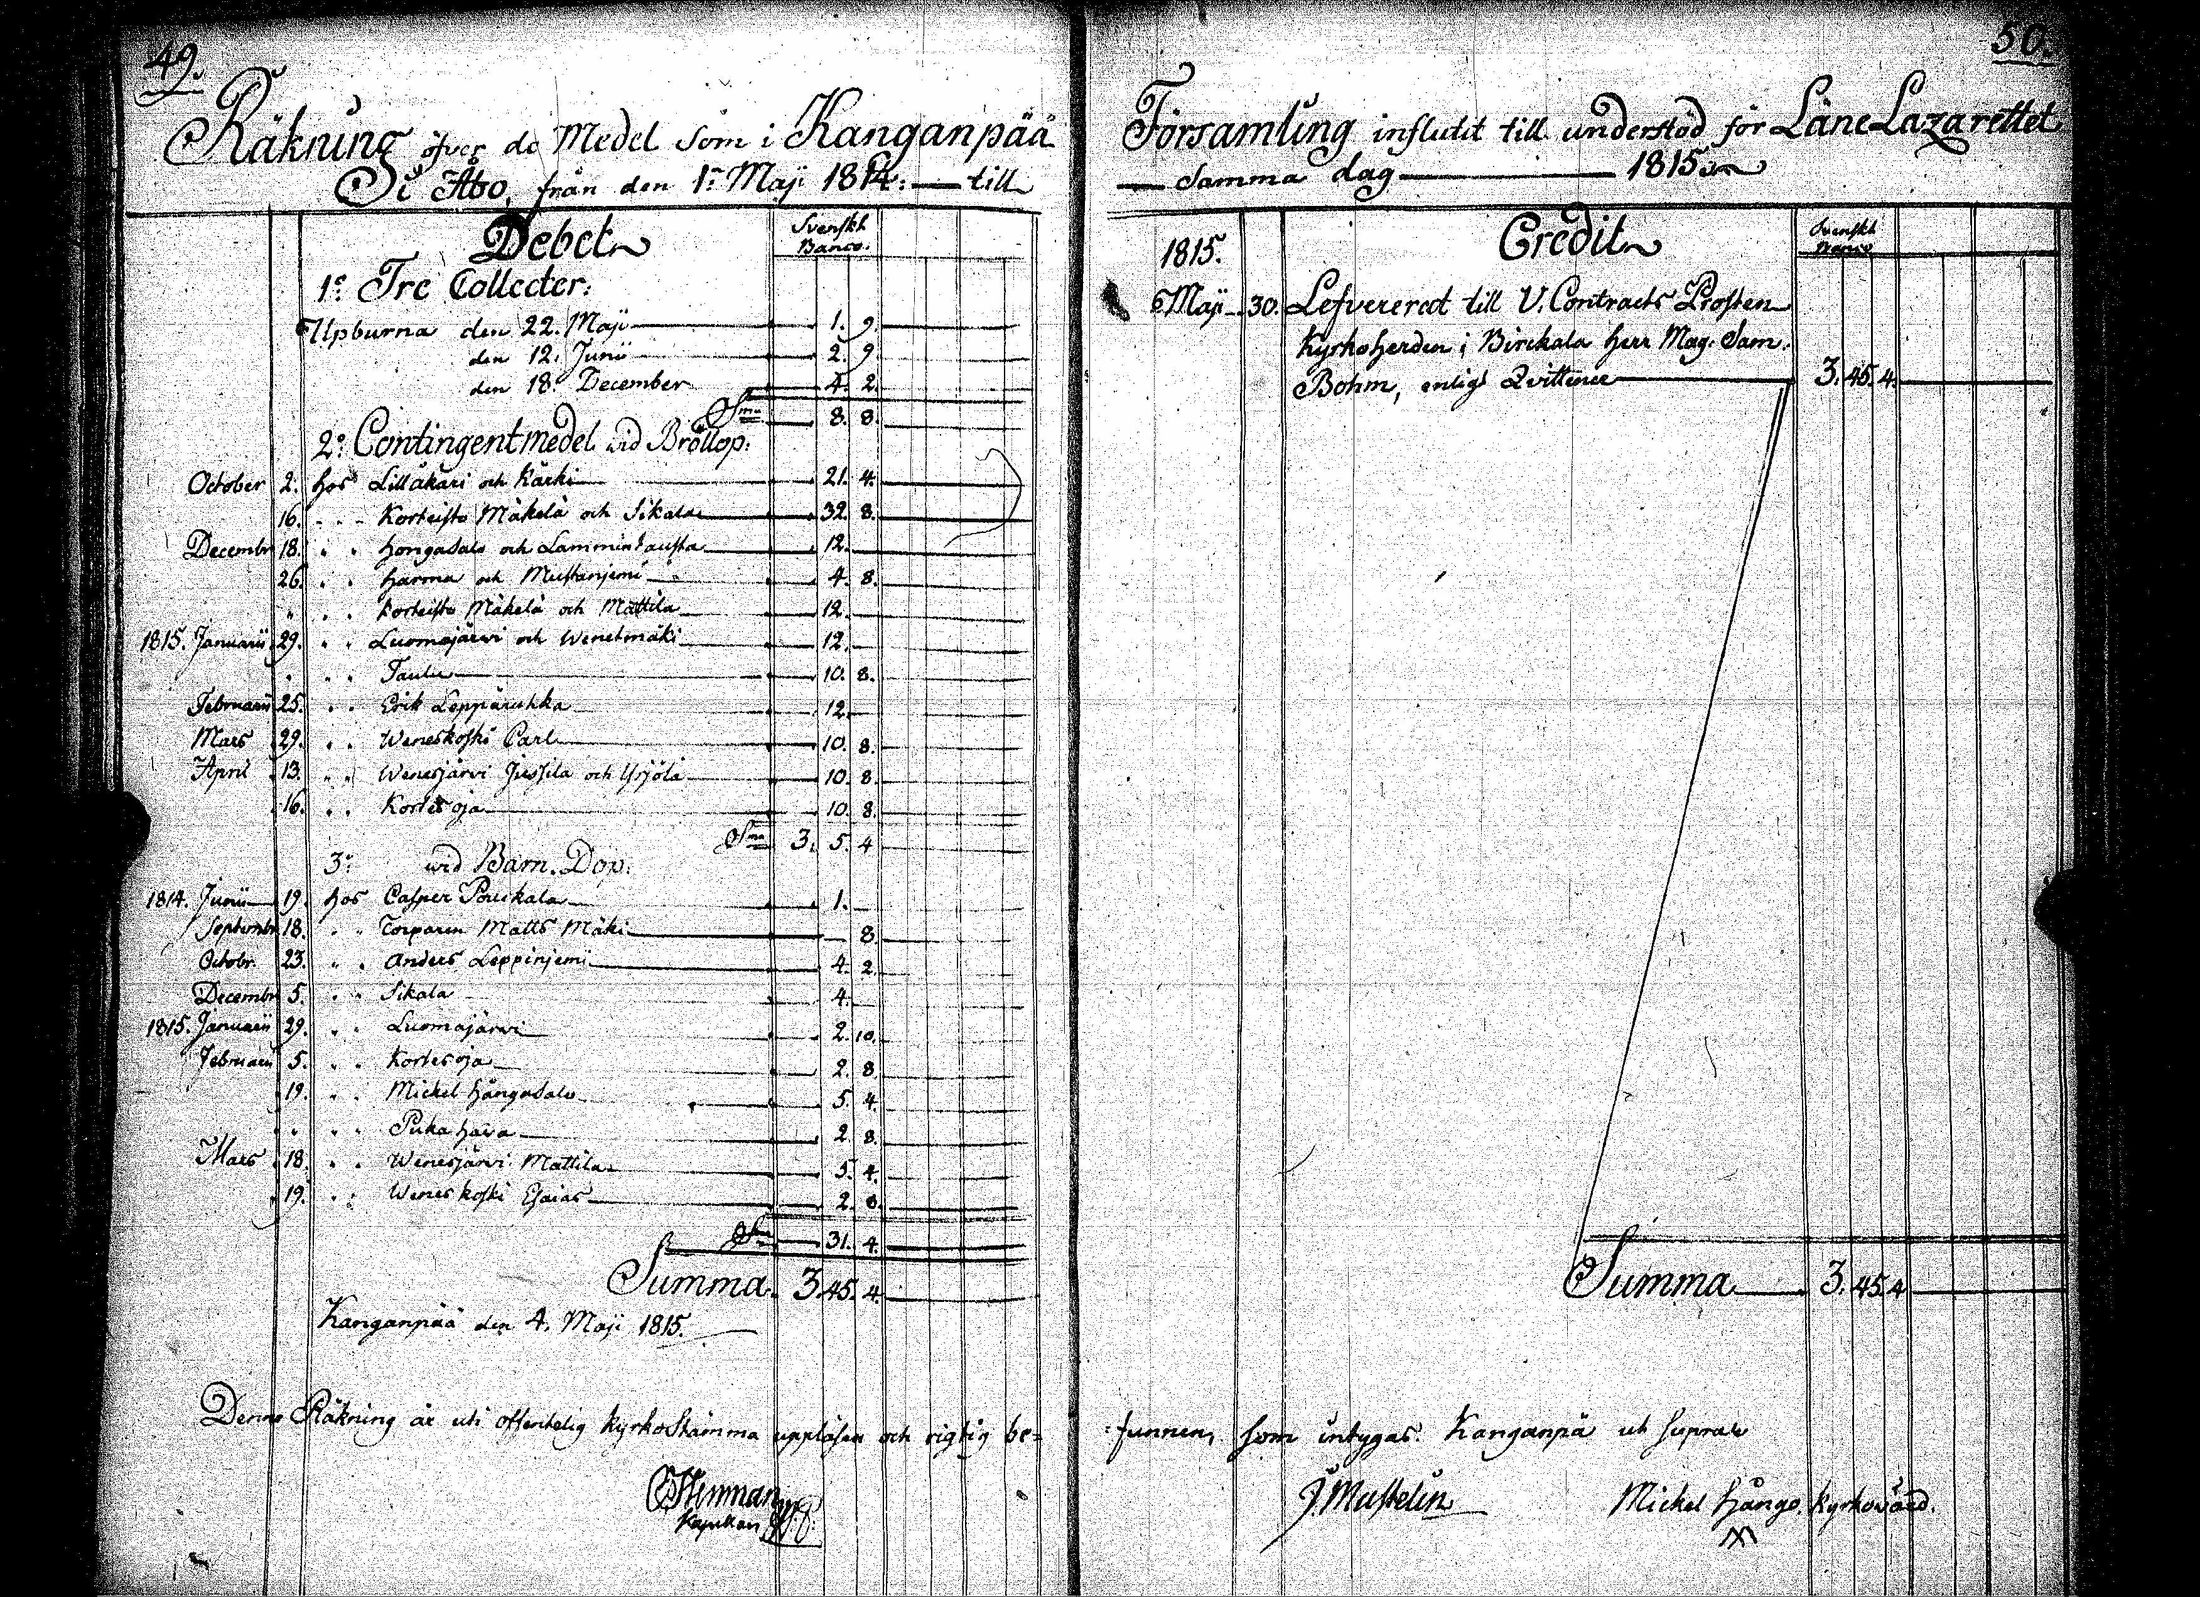 49.
Räkning öfver de Medel som i Kanganpää
i Åbo, från den 1:e Maji 1814: — till
Debet
Svenskt
Banco.
1:o Tre Collecter:
Upburna den 22. Maji 1. 9.
den 12. Junii 2. 9
den 18. December 4. 2.
S:ma 8. 8.
2:o Contingentmedel wid Bröllop:
October 2. hos Lillåkäri och Kärki 21. 4.
16. Korteisto Mäkelä och Sikala 32. 8.
Decembr 18. Hongasalo och Lammintausta 12.
26. Harma och Mustanjemi 4. 8.
" Korteisto Mäkelä och Mattila 12.
1815. Januarii 29. Luomajärwi och Wenetmäki 12.
" Taulu 10. 8.
Februarii 25. Erik Leppäruhka 12.
Mars 29. Weneskoski Carl 10. 8.
April 13. Wenesjärvi Jussila och Yrjölä 10. 8.
16. Kortesoja 10. 8.
S:ma 3. 5. 4
3:o wid Barn. Dop:
1814. Junii 19. hos Casper Pouskala 1.
Septembr 18. Torparen Matts Mäki 8.
Octobr. 23. Anders Leppinjemi 4. 2.
Decembr 5. Sikala 4.
1815. Januarii 29. Luomajärwi 2. 10.
Februarii 5. Kortesoja 2. 8.
19. Mickel Hångasalo 5. 4.
" Pukahara 2. 8.
Mars 18. Wenesjärvi Mattila 5. 4.
19. Weneskoski Esaias 2. 8.
S:ma 31. 4.
Summa. 3. 45. 4.
Kanganpää den 4. Maji 1815.
Denne Räkning är uti offentelig kyrkostämma uppläsen och rigtig be=
Kapellan
50.
Församling influtit till understöd för LäneLazarettet
— Samma dag — 1815.
Credit
Svenskt
Banco
1815.
Maji 30. Lefvererat till V. Contracts Prosten
Kyrkoherden i Birckala herr Mag. Sam.
Bohm, enligt Qvittence 3. 45. 4.
Summa 3. 45. 4
funnen, som intygas. Kanganpä ut supra
J. Mustelin
Mickel Hångo. kyrkovärd.